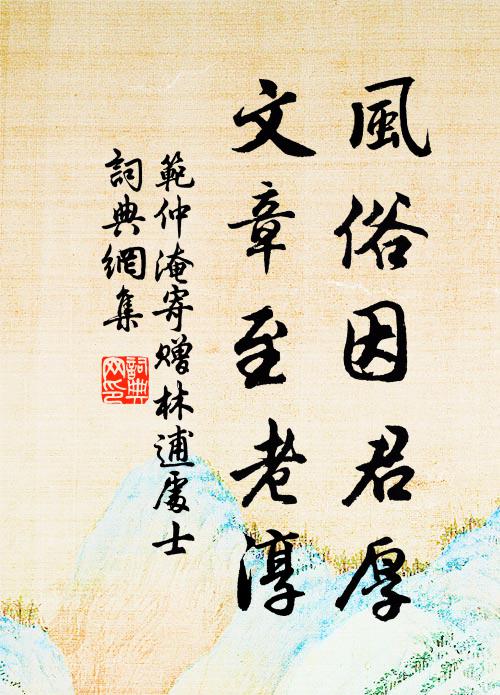 風俗因君厚
文章至老淳
範仲淹寄赠林逋處士
詞典網集
詞典
网印